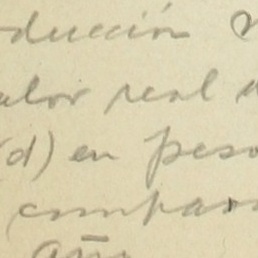 ducción
alor real
(d) en peso
compara
año